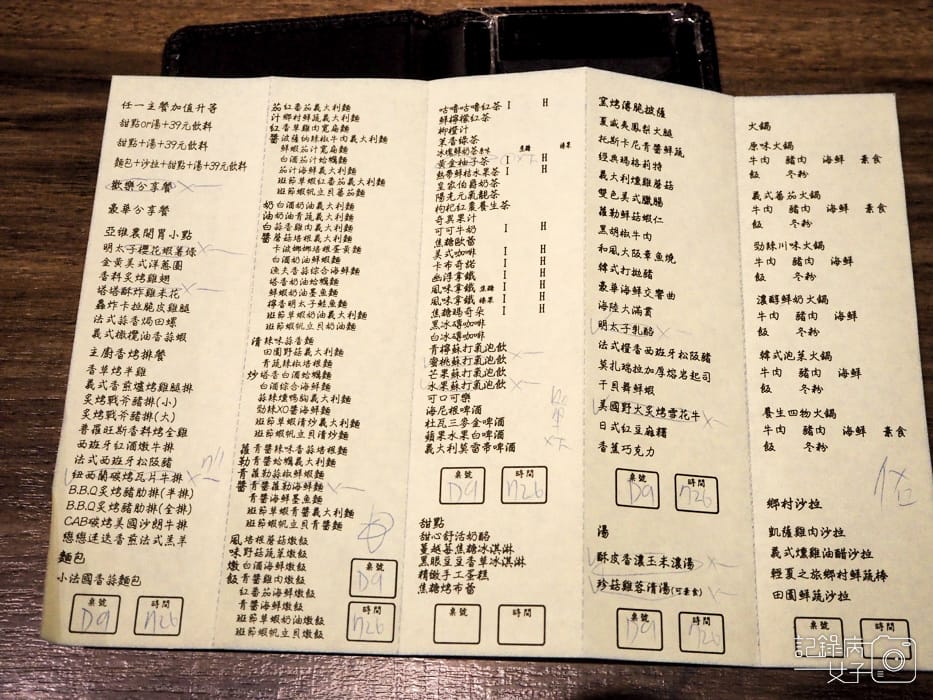 任一主餐加值升等
甜點or湯+39元飲料
甜點+湯+39元飲料
麵包+沙拉+甜點+湯+39元飲料
歡樂分享餐
豪華分享餐
亞維農開胃小點
明太子櫻花蝦薯條
金黃美式洋蔥圈
香料炙烤雞翅
塔塔酥炸雞米花
轟炸卡拉脆皮雞腿
法式蒜香焗田螺
義式橄欖油香蒜蝦
主廚香烤排餐
香草烤半雞
義式香煎爐烤雞腿排
炙烤戰斧豬排(小)
炙烤戰斧豬排(大)
普羅旺斯香料烤全雞
西班牙紅酒燉牛排
法式西班牙松阪豬
紐西蘭碳烤瓦片牛排
B.B.Q炙烤豬肋排(半排)
B.B.Q炙烤豬肋排(全排)
CAB碳烤美國沙朗牛排
戀戀迷迭香煎法式羔羊
麵包
小法國香蒜麵包
桌號 時間
D9 1726
茄紅番茄義大利麵
汁鄉村鮮蔬義大利麵
紅香草雞肉寬扁麵
醬波薩納辣椒牛肉義大利麵
鮮蝦茄汁寬扁麵
白酒茄汁蛤蠣麵
茄汁海鮮義大利麵
班節草蝦紅番茄義大利麵
班節蝦帆立貝蕃茄麵
奶白酒奶油義大利麵
油奶油青蔬義大利麵
白蒜香雞肉義大利麵
醬蘑菇培根義大利麵
卡波娜娜培根蛋黃麵
白酒奶油鮮蝦麵
漁夫香蒜綜合海鮮麵
塔香奶油蛤蠣麵
鮮蝦奶油墨魚麵
檸香明太子鮭魚麵
班節草蝦奶油義大利麵
班節蝦帆立貝奶油麵
清辣味蒜香麵
田園野菇義大利麵
青蔬辣椒培根麵
炒塔香白酒蛤蠣麵
白酒綜合海鮮麵
蒜辣燻鴨胸義大利麵
勁辣XO醬海鮮麵
班節草蝦清炒義大利麵
班節蝦帆立貝清炒麵
蘿青醬辣味香蒜培根麵
勒青醬蛤蠣義大利麵
青蘿勒蒜椒鮮蝦麵
醬青醬蘿勒海鮮麵
青醬海鮮墨魚麵
班節草蝦青醬義大利麵
班節蝦帆立貝青醬麵
風培根蘑菇燉飯
味野菇蔬菜燉飯
燉白酒海鮮燉飯
飯青醬雞肉燉飯
紅番茄海鮮燉飯
青醬海鮮燉飯
班節草蝦奶油燉飯
班節蝦帆立貝燉飯
桌號
D9
時間
1726
咕嚕咕嚕紅茶 I H
鮮檸檬紅茶
柳橙汁
茉香綠茶
冰塊鮮奶茶 焦糖 榛果
黃金柚子茶 I H
熱帶鮮桔水果茶 I H
皇家伯爵奶茶
陽光元氣靚茶
枸杞紅棗養生茶
奇異果汁
可可牛奶 I H
焦糖歐蕾
美式咖啡 I H
卡布奇諾 I H
幽浮拿鐵 I H
風味拿鐵 焦糖 I H
風味拿鐵 榛果 I H
焦糖瑪奇朵 I H
黑冰磚咖啡
白冰磚咖啡
青檸蘇打氣泡飲
蜜桃蘇打氣泡飲
芒果蘇打氣泡飲
水果蘇打氣泡飲
可口可樂
海尼根啤酒
杜瓦三麥金啤酒
蘋果水果白啤酒
義大利莫雷帝啤酒
桌號 時間
D9 1726
甜點
甜心舒活奶酪
蔓越莓焦糖冰淇淋
黑眼豆豆香草冰淇淋
精緻手工蛋糕
焦糖烤布蕾
桌號 時間
窯烤薄脆披薩
夏威夷鳳梨火腿
托斯卡尼青醬鮮蔬
經典瑪格莉特
義大利燻雞蘑菇
雙色美式臘腸
蘿勒鮮菇蝦仁
黑胡椒牛肉
和風大阪章魚燒
韓式打拋豬
豪華海鮮交響曲
海陸大滿貫
明太子乳酪
法式橙香西班牙松阪豬
莫扎瑞拉加厚熔岩起司
干貝舞鮮蝦
美國野火炙烤雪花牛
日式紅豆麻糬
香蕉巧克力
桌號 時間
D9 1726
湯
酥皮香濃玉米濃湯
珍菇雞蓉清湯(可素食)
桌號 時間
D9 1726
火鍋
原味火鍋
牛肉 豬肉 海鮮 素食
飯 冬粉
義式蕃茄火鍋
牛肉 豬肉 海鮮 素食
飯 冬粉
勁辣川味火鍋
牛肉 豬肉 海鮮
飯 冬粉
濃醇鮮奶火鍋
牛肉 豬肉 海鮮
飯 冬粉
韓式泡菜火鍋
牛肉 豬肉 海鮮
飯 冬粉
養生四物火鍋
牛肉 豬肉 海鮮 素食
飯 冬粉
鄉村沙拉
凱薩雞肉沙拉
義式燻雞油醋沙拉
輕夏之旅鄉村鮮蔬棒
田園鮮蔬沙拉
桌號 時間
記錄內女子